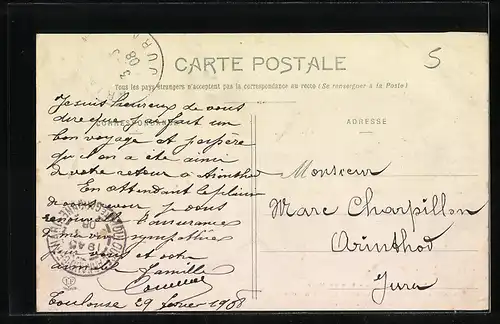 JURA
3
08
CARTE POSTALE
5
Tous les pays étrangers n'acceptent pas la correspondance au recto (Se renseigner à la Poste)
Je suis heureux de vous
CORRESPONDANCE
ADRESSE
dire que j'ai fait un
bon voyage et j'espère
qu'il en a été ainsi
à votre retour à Arinthod
En attendant le plaisir
de vous voir je vous
renouvelle l'assurance
de ma vive sympathie
à vous et votre
famille
Toulouse 29 février 1908
Monsieur
Marc Charpillon
Arinthod
Jura